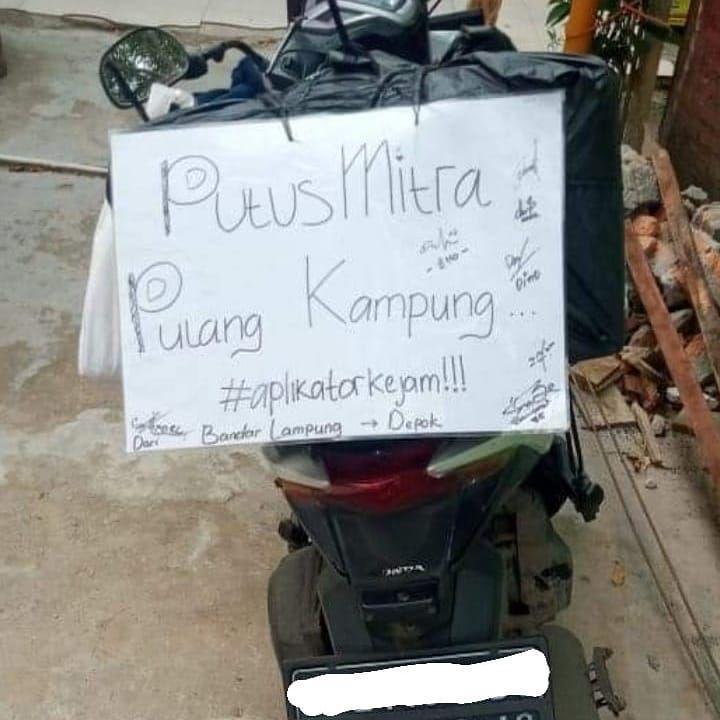 Putus Mitra
Pulang Kampung...
#aplikatorkejam!!!
Dari Bandar Lampung → Depok
HONDA